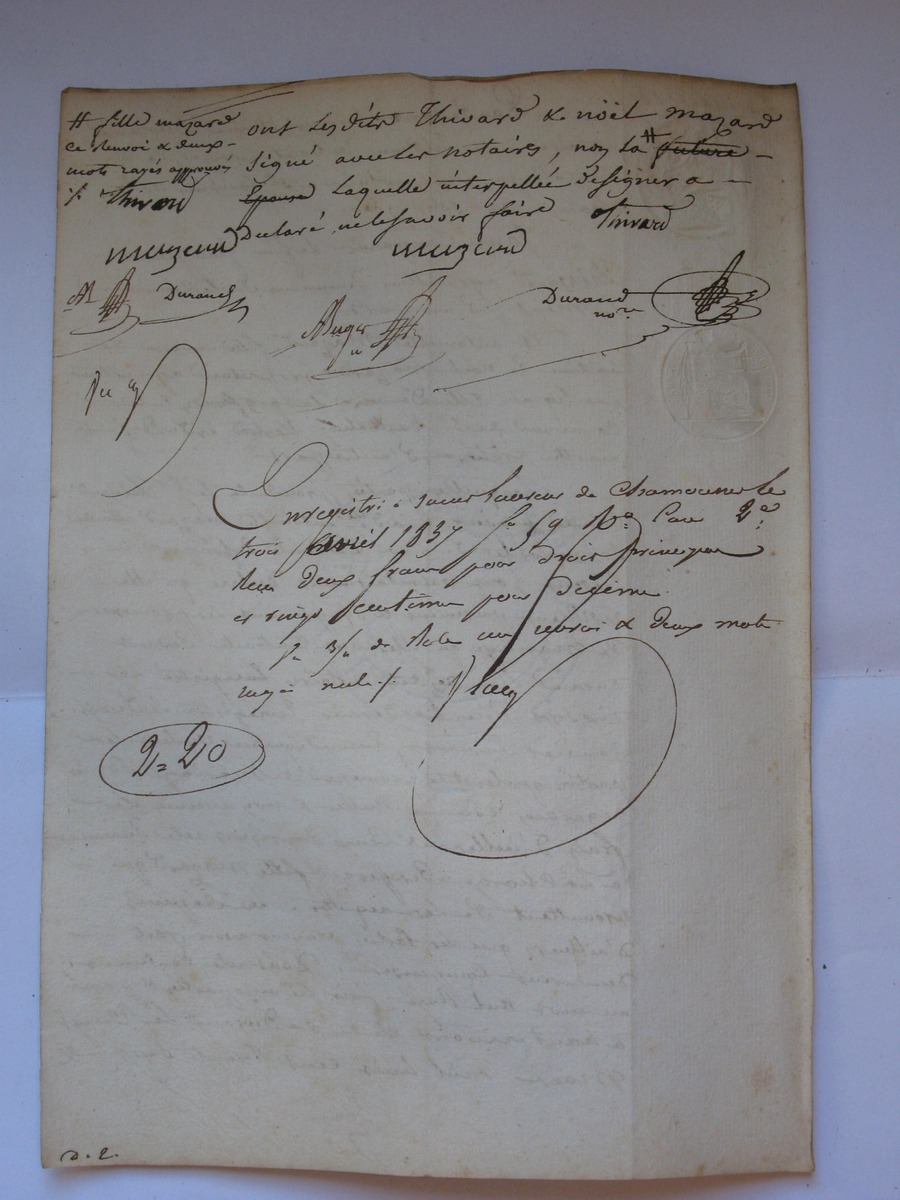 # fille mazard
ce renvoi & deux
mots rayés approuvés
Thivard
ont lesdits Thivard & noël mazard
signé avec les notaires, non la # future
Epouse laquelle interpellée de signer a
Declaré ne le savoir faire
Thivard
mazard
mazard
Durand
Auger
Durand
no.re
Enregistré à
de Chamounet le
trois avril 1837 f.o 59 v.o Case 2.e
Reçu deux francs pour droit principal
et vingt centimes pour Décime.
de Role un renvoi & deux mots
rayés nuls
2=20
D. 2.